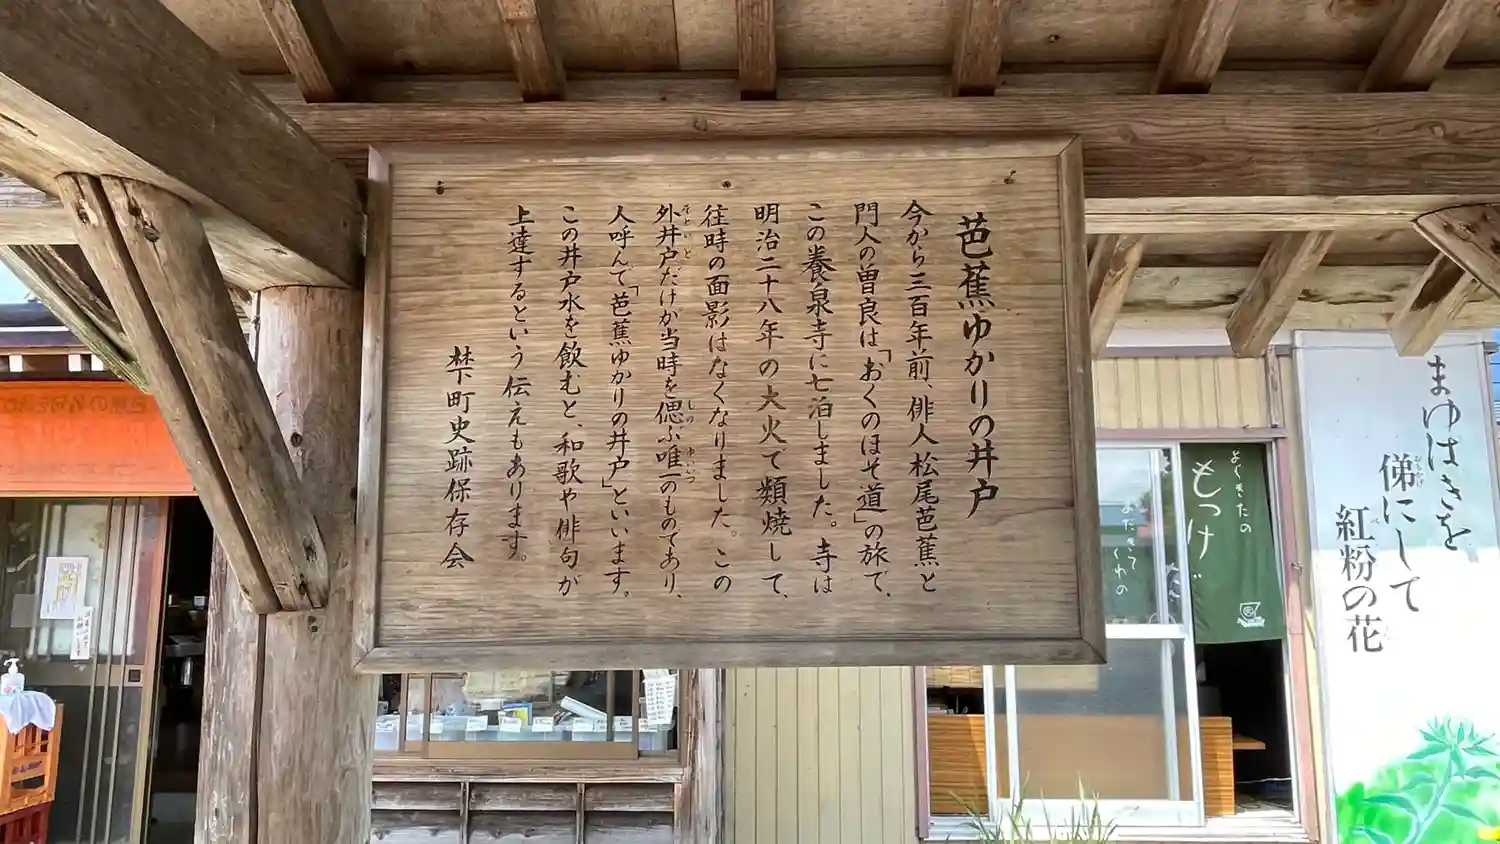 芭蕉ゆかりの井戸
今から三百年前、俳人松尾芭蕉と
門人の曽良は「おくのほそ道」の旅で、
この養泉寺に七泊しました。寺は
明治二十八年の大火で類焼して、
往時の面影はなくなりました。この
外井戸だけが当時を偲ぶ唯一のものであり、
そといど
しの
ゆいいつ
人呼んで「芭蕉ゆかりの井戸」といいます。
この井戸水を飲むと、和歌や俳句が
上達するという伝えもあります。
梺町史跡保存会
よぐきたの
もっけ
まゆはきを
俤にして
おもかげ
紅粉の花
べに